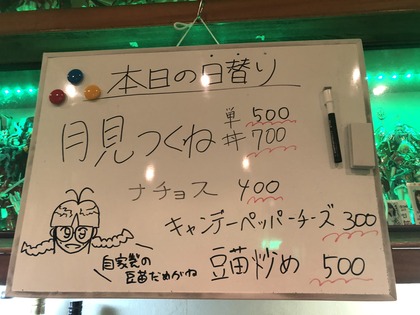 本日の日替り
月見つくね 単 500
丼 700
ナチョス 400
キャンデーペッパーチーズ 300
豆苗炒め 500
自家製の
豆苗だめがね